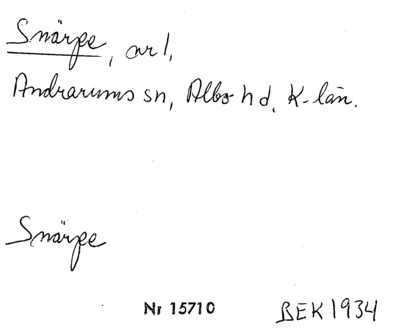 Snärpe, avl,
Andrarums sn, Albo hd, K-län.
Snärpe
Nr 15710 BEK 1934